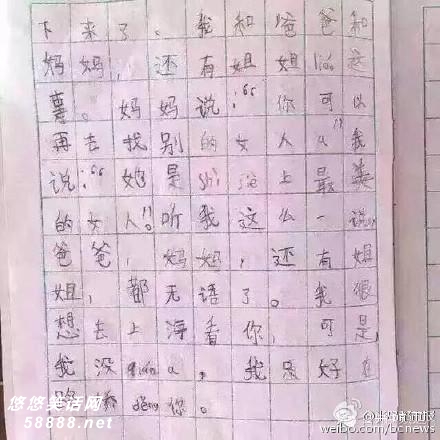 下来了。我和爸爸和
妈妈，还有姐姐liáo这
妈妈说：“你可以
再去找别的女人a”我
说：“她是shì jiè上最美
的女人”。听我这么一说，
爸爸，妈妈，还有姐
姐，都无语了。我很
想去上海看你，可是
我没qián a，我只好在
děng你。
悠悠笑话网
58888.net
weibo.com/bcnews